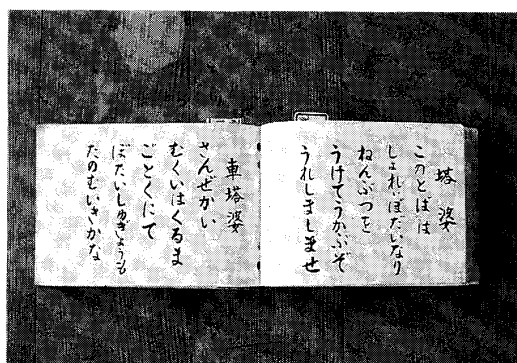 塔婆
このとばは
しょれいぼだいなり
ねんぶつを
うけてうかぶぞ
うれしましませ
車塔婆
さんぜかい
むくいはくるま
ごとくにて
ぼだいしゅぎょうも
たのむいきかな